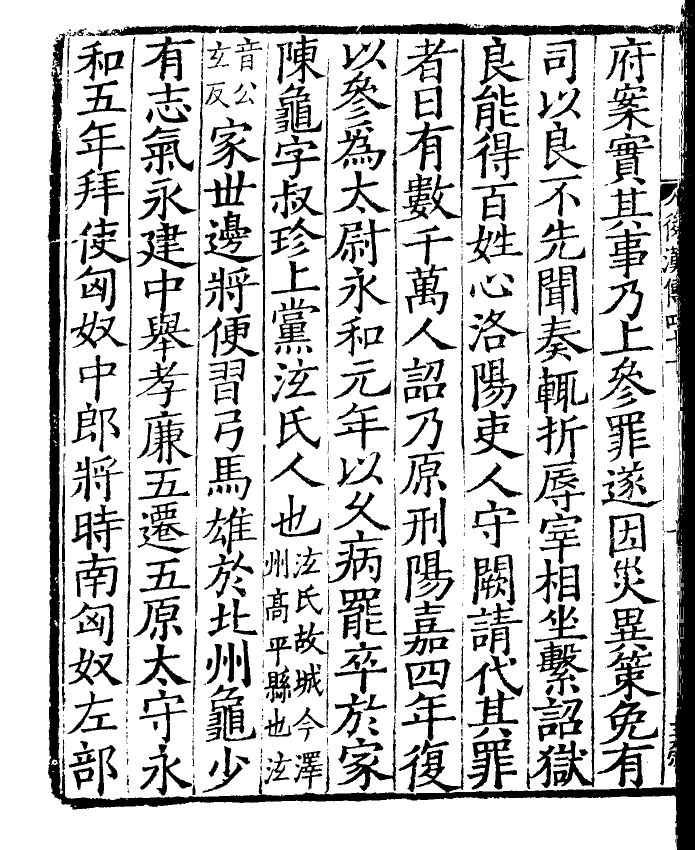 府案實其事乃上參罪遂因災異策免有
司以良不先聞奏輒折辱宰相坐繫詔獄
良能得百姓心洛陽吏人守闕請代其罪
者日有數千萬人詔乃原刑陽嘉四年復
以參為太尉永和元年以久病罷卒於家
陳龜字叔珍上黨泫氏人也泫氏故城今澤州高平縣也泫
音公玄反家世邊將便習弓馬雄於北州龜少
有志氣永建中舉孝廉五遷五原太守永
和五年拜使匈奴中郎將時南匈奴左部